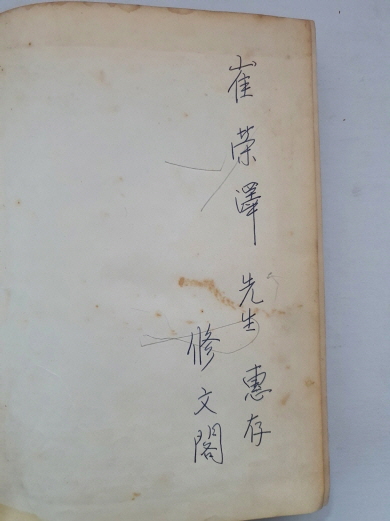 崔荣澤先生惠存
修文閣